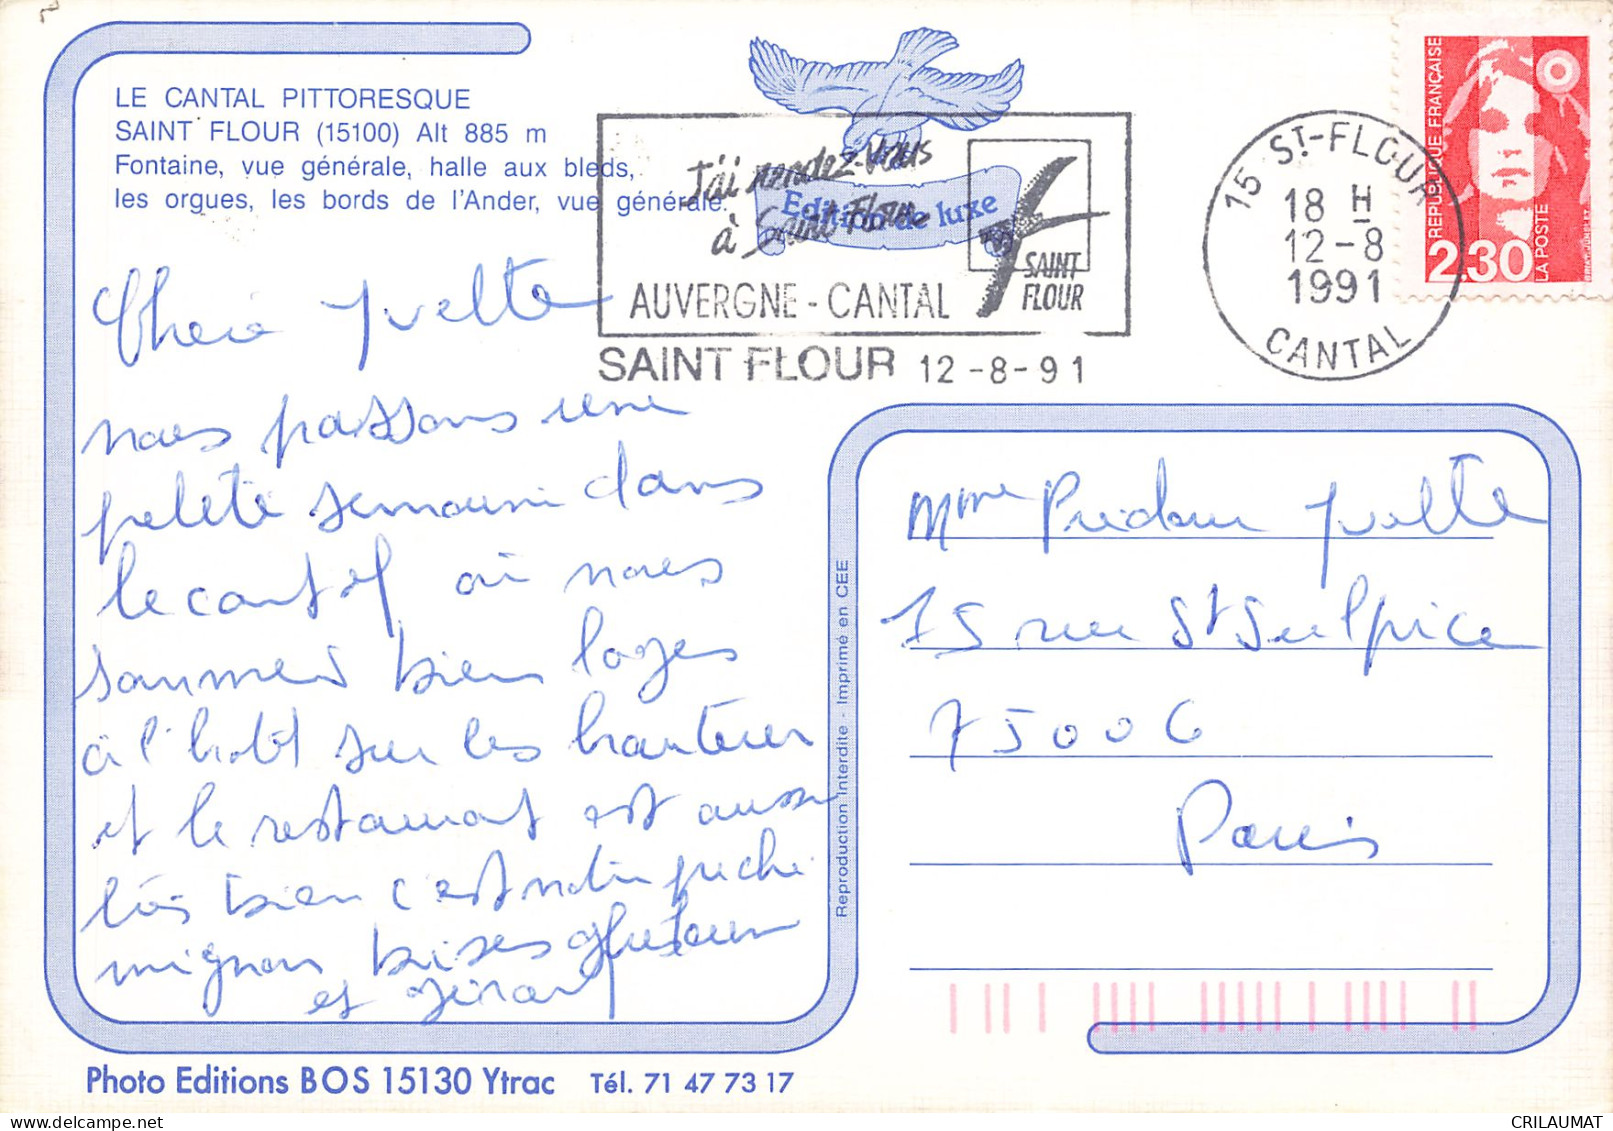 LE CANTAL PITTORESQUE
SAINT FLOUR (15100) Alt 885 m
Fontaine, vue générale, halle aux bleds,
les orgues, les bords de l'Ander, vue générale.
Edition de luxe
J'ai rendez-vous
à Saint-Flour
AUVERGNE - CANTAL
SAINT
FLOUR
SAINT FLOUR 12 -8- 91
15 St-FLOUR
18 H
12-8
1991
CANTAL
REPUBLIQUE FRANÇAISE
2,30
LA POSTE
Chere Yvette
nous passons une
petite semaine dans
le cantal où nous
sommes bien loges
à l'hotel sur les hauteurs
et le restaurant est aussi
très bien c'est notre peche
mignon bises
et Gérard
Mme Yvette
15 rue St Sulpice
75006
Paris
Reproduction Interdite - Imprimé en CEE
Photo Editions BOS 15130 Ytrac Tél. 71 47 73 17
CRILAUMAT